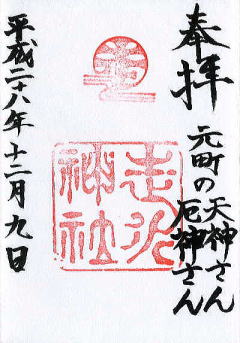 奉拝
元町の天神さん
厄神さん
走水
神社
平成二十八年十二月九日